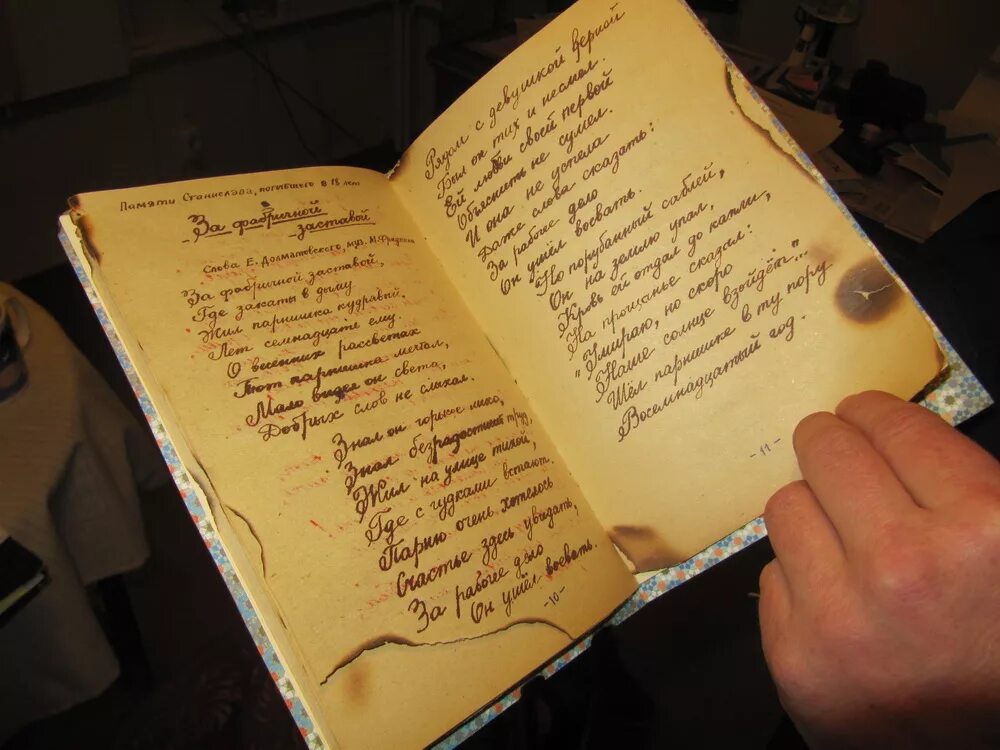 Памяти Станислава, погибшего в 18 лет
За фабричной
заставой
Слова Е. Долматовского, муз. М. Фрадкина
За фабричной заставой,
Где закаты в дыму
Жил парнишка кудравый.
Лет семнадцате ему.
О весенних рассветах
Тот парнишка мечтал,
Мало видел он света,
Добрых слов не слыхал.
Знал он горькое
Знал безрадостный труд,
Жил на улице тихой,
Где с гудками встают.
Парню очень хотелось
Счастье здесь увидать,
За рабочее дело
Он ушёл воевать.
-10-
Рядом с девушкой верной
Был он тих и несмел.
Ей любви своей первой
Объяснить не сумел.
И она не успела
Даже слова сказать:
За рабочее дело
Он ушёл воевать.
Но порубанный саблей,
Он на землю упал,
Кровь ей отдал до капли,
На прощанье сказал:
"Умираю, но скоро
Наше солнце взойдёт..."
Шёл парнишке в ту пору
Восемнадцатый год.
-11-